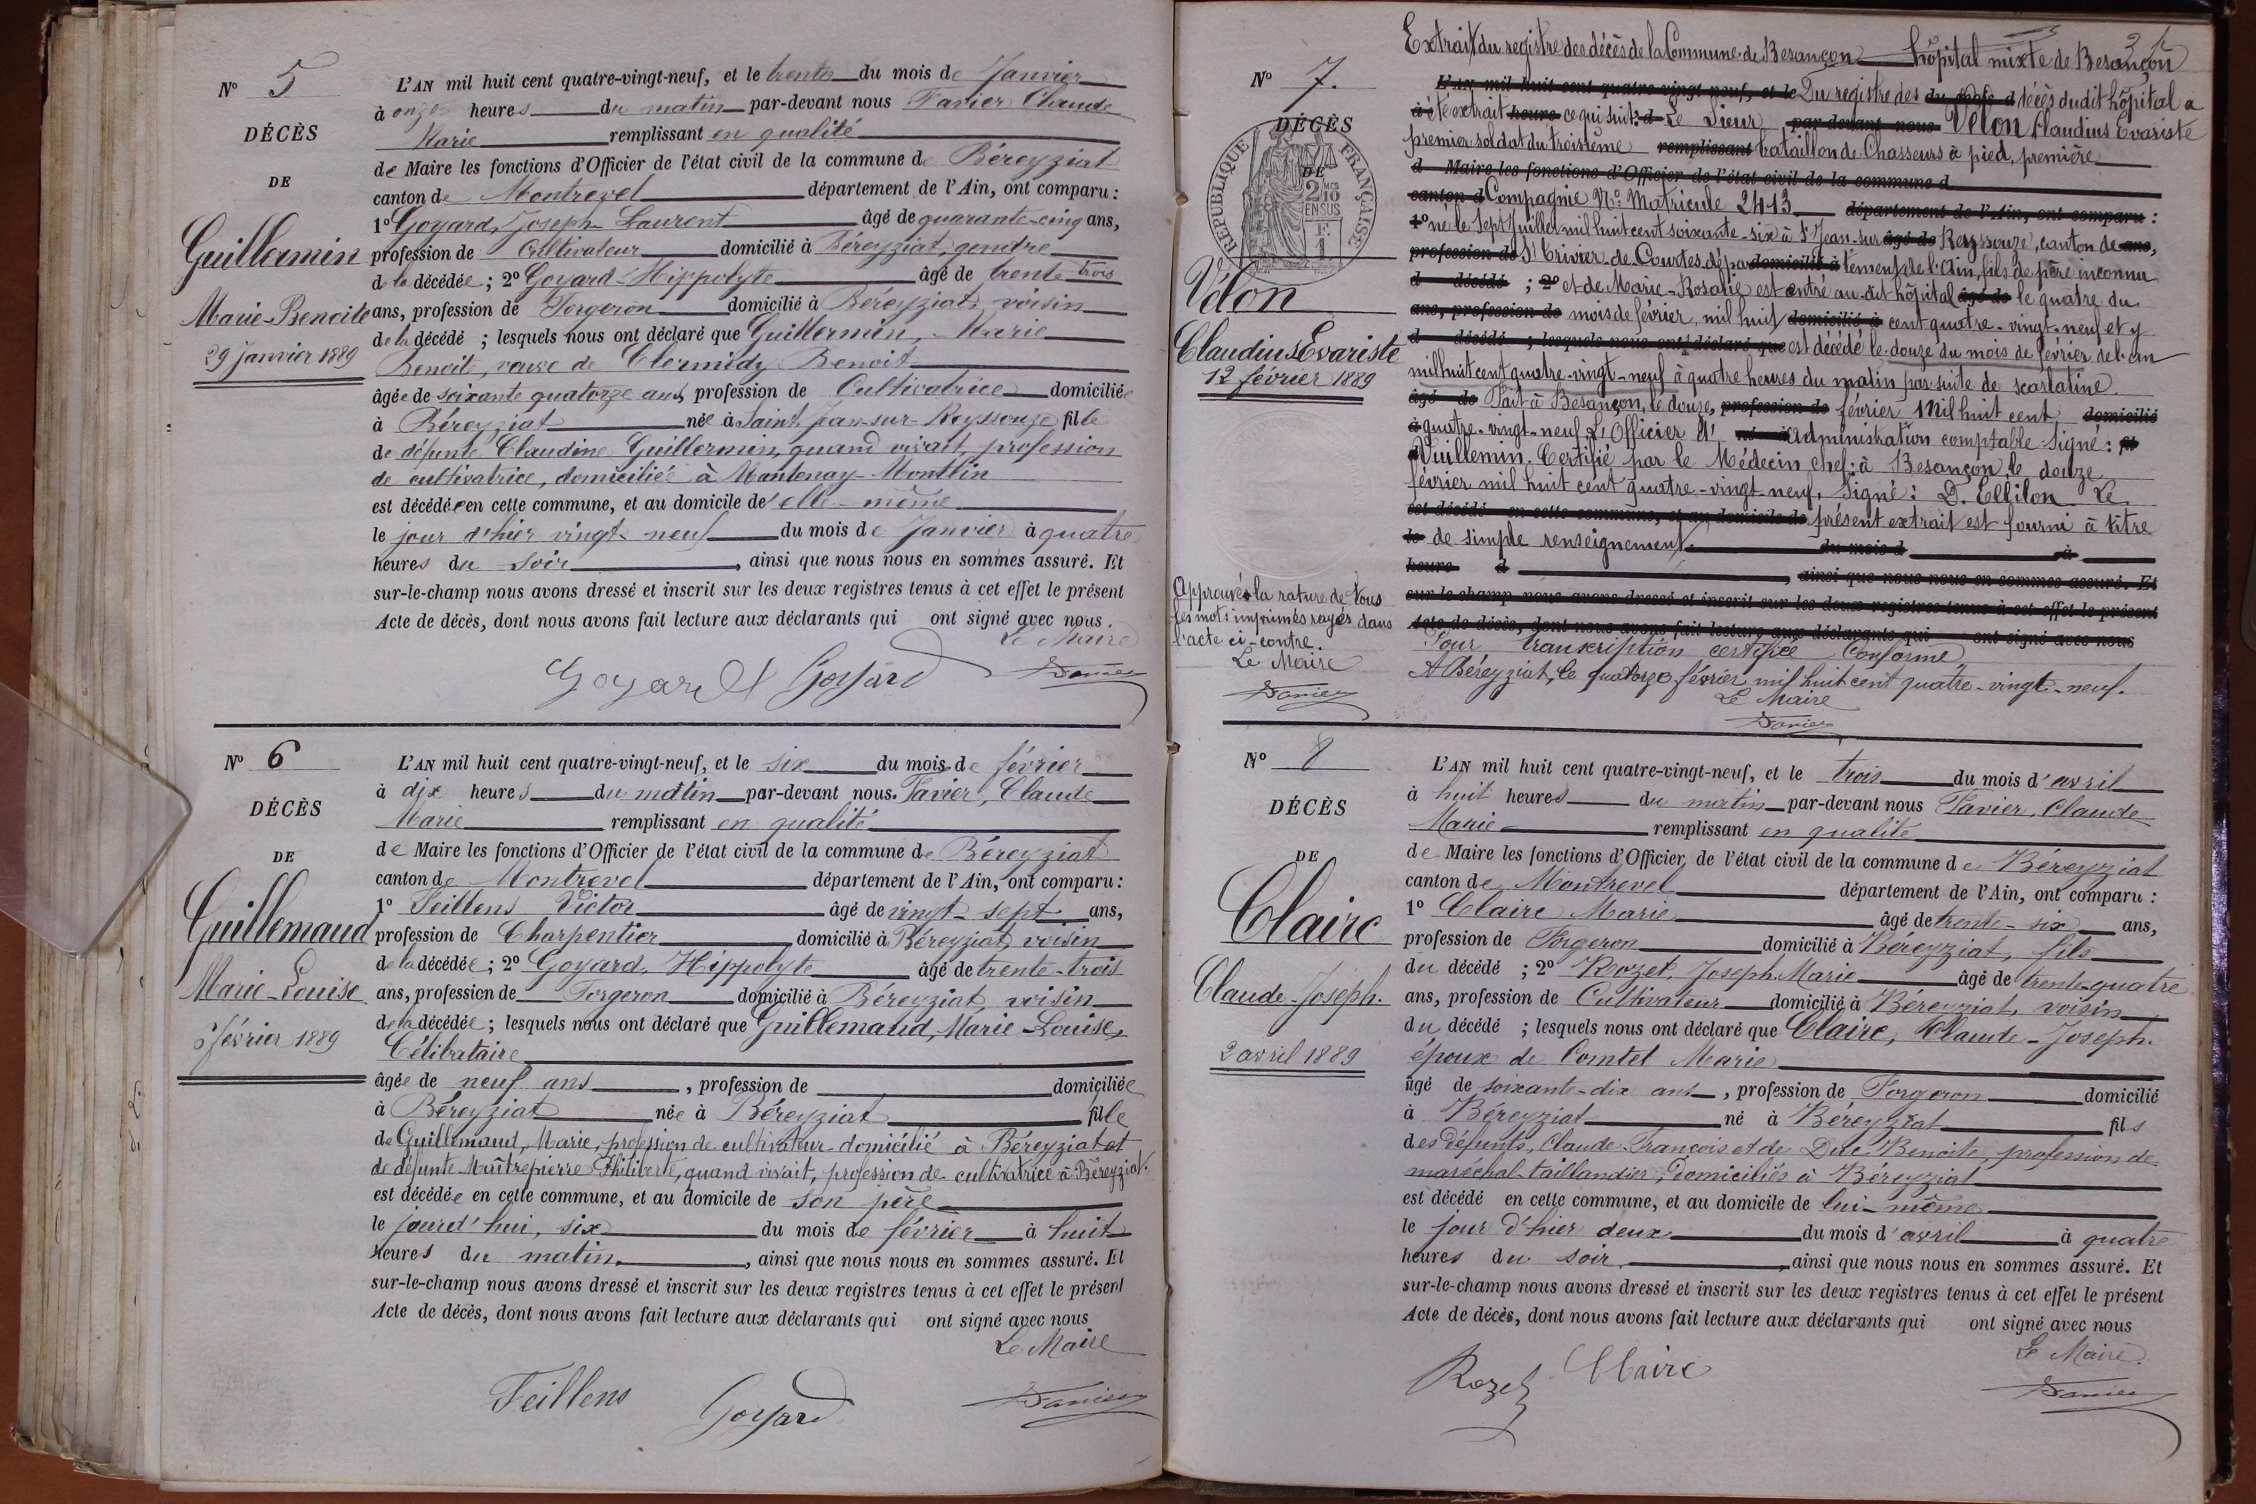 N° 5
DÉCÈS
DE
Guillermin
Marie-Benoite
29 janvier 1889
L'AN mil huit cent quatre-vingt-neuf, et le trente du mois de Janvier
à onze heures du matin par-devant nous Favier Claude
Marie remplissant en qualité
de Maire les fonctions d'Officier de l'état civil de la commune de Béreyziat
canton de Montrevel département de l'Ain, ont comparu :
1° Goyard, Joseph-Laurent âgé de quarante-cinq ans,
profession de Cultivateur domicilié à Béreyziat, gendre
de la décédée ; 2° Goyard Hippolyte âgé de trente trois
ans, profession de Forgeron domicilié à Béreyziat, voisin
de la décédé ; lesquels nous ont déclaré que Guillermin, Marie
Benoite, veuve de Clermidy Benoit
âgée de soixante quatorze ans, profession de Cultivatrice domiciliée
à Béreyziat née à Saint Jean-sur-Reyssouze fille
de défunte Claudine Guillermin, quand vivait, profession
de cultivatrice, domiciliée à Mantenay-Montlin
est décédée en cette commune, et au domicile de elle-même
le jour d'hier vingt-neuf du mois de Janvier à quatre
heures du soir, ainsi que nous nous en sommes assuré. Et
sur-le-champ nous avons dressé et inscrit sur les deux registres tenus à cet effet le présent
Acte de décès, dont nous avons fait lecture aux déclarants qui ont signé avec nous.
Le Maire
Goyard Goyard Favier
N° 6
DÉCÈS
DE
Guillemaud
Marie-Louise
6 février 1889
L'AN mil huit cent quatre-vingt-neuf, et le six du mois de février
à dix heures du matin par-devant nous. Favier, Claude
Marie remplissant en qualité
de Maire les fonctions d'Officier de l'état civil de la commune de Béreyziat
canton de Montrevel département de l'Ain, ont comparu :
1° Feillens Victor âgé de vingt-sept ans,
profession de Charpentier domicilié à Béreyziat voisin
de la décédée ; 2° Goyard, Hippolyte âgé de trente-trois
ans, profession de Forgeron domicilié à Béreyziat, voisin
de la décédée ; lesquels nous ont déclaré que Guillemaud, Marie-Louise,
Célibataire
âgée de neuf ans, profession de domiciliée
à Béreyziat née à Béreyziat fille
de Guillemaud, Marie, profession de cultivateur domicilié à Béreyziat et
de défunte Maîtrepierre Philiberte, quand vivait, profession de cultivatrice à Béreyziat.
est décédée en cette commune, et au domicile de son père
le jourd'hui, six du mois de février à huit
heures du matin, ainsi que nous nous en sommes assuré. Et
sur-le-champ nous avons dressé et inscrit sur les deux registres tenus à cet effet le présent
Acte de décès, dont nous avons fait lecture aux déclarants qui ont signé avec nous
Le Maire
Feillens Goyard Favier
N° 7.
DÉCÈS
DE
RÉPUBLIQUE FRANÇAISE
2/10 EN SUS
Vélon
Claudius Evariste
12 février 1889
Approuvé la rature de tous
les mots imprimés rayés dans
l'acte ci-contre.
Le Maire
Favier
Extrait du registre des décès de la Commune de Besançon hôpital mixte de Besançon
L'AN mil huit cent quatre-vingt-neuf, et le Du registre des du mois d décès dudit hôpital a
à été extrait heure ce qui suit: d Le Sieur par-devant nous Vélon Claudius Evariste
premier soldat du troisième remplissant bataillon de Chasseurs à pied, première
d Maire les fonctions d'Officier de l'état civil de la commune d
canton d Compagnie N° Matricule 2413 département de l'Ain, ont comparu :
1° né le Sept Juillet mil huit cent soixante-six à St Jean-sur âgé de Reyssouze, canton de ans,
profession de St Trivier de Courtes dépar domicilié à tement de l'Ain, fils de père inconnu
d décédé ; 2° et de Marie-Rosalie est entré au dit hôpital âgé de le quatre du
ans, profession de mois de février, mil huit domicilié à cent quatre-vingt-neuf et y
d décédé ; lesquels nous ont déclaré que est décédé le douze du mois de février de l'an
mil huit cent quatre-vingt-neuf à quatre heures du matin par suite de scarlatine.
âgé de Fait à Besançon, le douze, profession de février mil huit cent domicilié
à quatre-vingt-neuf L'Officier d' né à Administration comptable Signé : fil
Vuillemin. Certifié par le Médecin chef: à Besançon, le douze
février mil huit cent quatre-vingt-neuf, Signé : D. Ellilon Le
est décédé en cette commune, et au domicile de présent extrait est fourni à titre
le de simple renseignement. du mois d à
heure d , ainsi que nous nous en sommes assuré. Et
sur-le-champ nous avons dressé et inscrit sur les deux registres tenus à cet effet le présent
Acte de décès, dont nous avons fait lecture aux déclarants qui ont signé avec nous
Pour transcription certifiée Conforme,
A Béreyziat, le quatorze février mil huit cent quatre-vingt-neuf.
Le Maire
Favier
N° 8
DÉCÈS
DE
Claire
Claude-Joseph.
2 avril 1889
L'AN mil huit cent quatre-vingt-neuf, et le trois du mois d'avril
à huit heures du matin par-devant nous Favier, Claude
Marie remplissant en qualité
de Maire les fonctions d'Officier de l'état civil de la commune de Béreyziat
canton de Montrevel département de l'Ain, ont comparu :
1° Claire Marie âgé de trente-six ans,
profession de Forgeron domicilié à Béreyziat, fils
du décédé ; 2° Rozet, Joseph-Marie âgé de trente-quatre
ans, profession de Cultivateur domicilié à Béreyziat, voisin
du décédé ; lesquels nous ont déclaré que Claire, Claude-Joseph.
époux de Comtet Marie
âgé de soixante-dix ans, profession de Forgeron domicilié
à Béreyziat né à Béreyziat fils
des défunts, Claude François et de Duc Benoite, profession de
maréchal-taillandier, Domiciliés à Béreyziat
est décédé en cette commune, et au domicile de lui-même
le jour d'hier deux du mois d'avril à quatre
heures du soir, ainsi que nous nous en sommes assuré. Et
sur-le-champ nous avons dressé et inscrit sur les deux registres tenus à cet effet le présent
Acte de décès, dont nous avons fait lecture aux déclarants qui ont signé avec nous
Le Maire.
Rozet Claire Favier